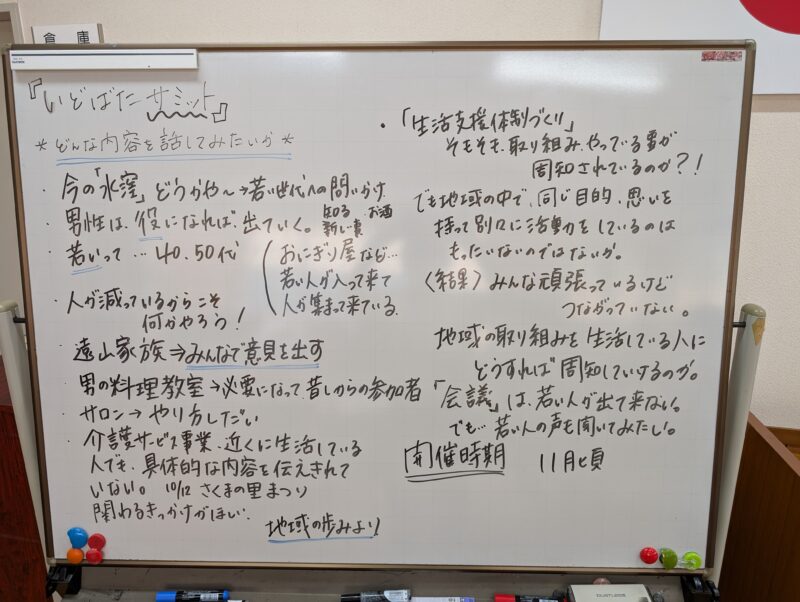 倉庫
『いどばたサミット』
*どんな内容を話してみたいか*
・今の「水窪」どうかや〜→若い世代への問いかけ
・男性は、役になれば、出ていく。知る 新しい事 お酒
・若いって…40.50代
(おにぎり屋など…
若い人が入って来て
人が集まって来ている.
・人が減っているからこそ
何かやろう!
・遠山家族⇒みんなで意見を出す
・男の料理教室→必要になって.昔しからの参加者
・サロン→やり方しだい
・介護サービス事業、近くに生活している
人でも、具体的な内容を伝えきれて
いない。 10/12 さくまの里まつり
関わるきっかけがほしい.
地域の歩みより
・「生活支援体制づくり」
そもそも、取り組み、やっている事が
周知されているのか?!
でも地域の中で、同じ目的、思いを
持って別々に活動をしているのは
もったいないのではないか。
〈結果〉みんな頑張っているけど
つながっていない。
地域の取り組みを生活している人に
どうすれば周知していけるのか。
「会議」は、若い人が出て来ない。
でも…若い人の声も聞いてみたい。
開催時期 11月頃